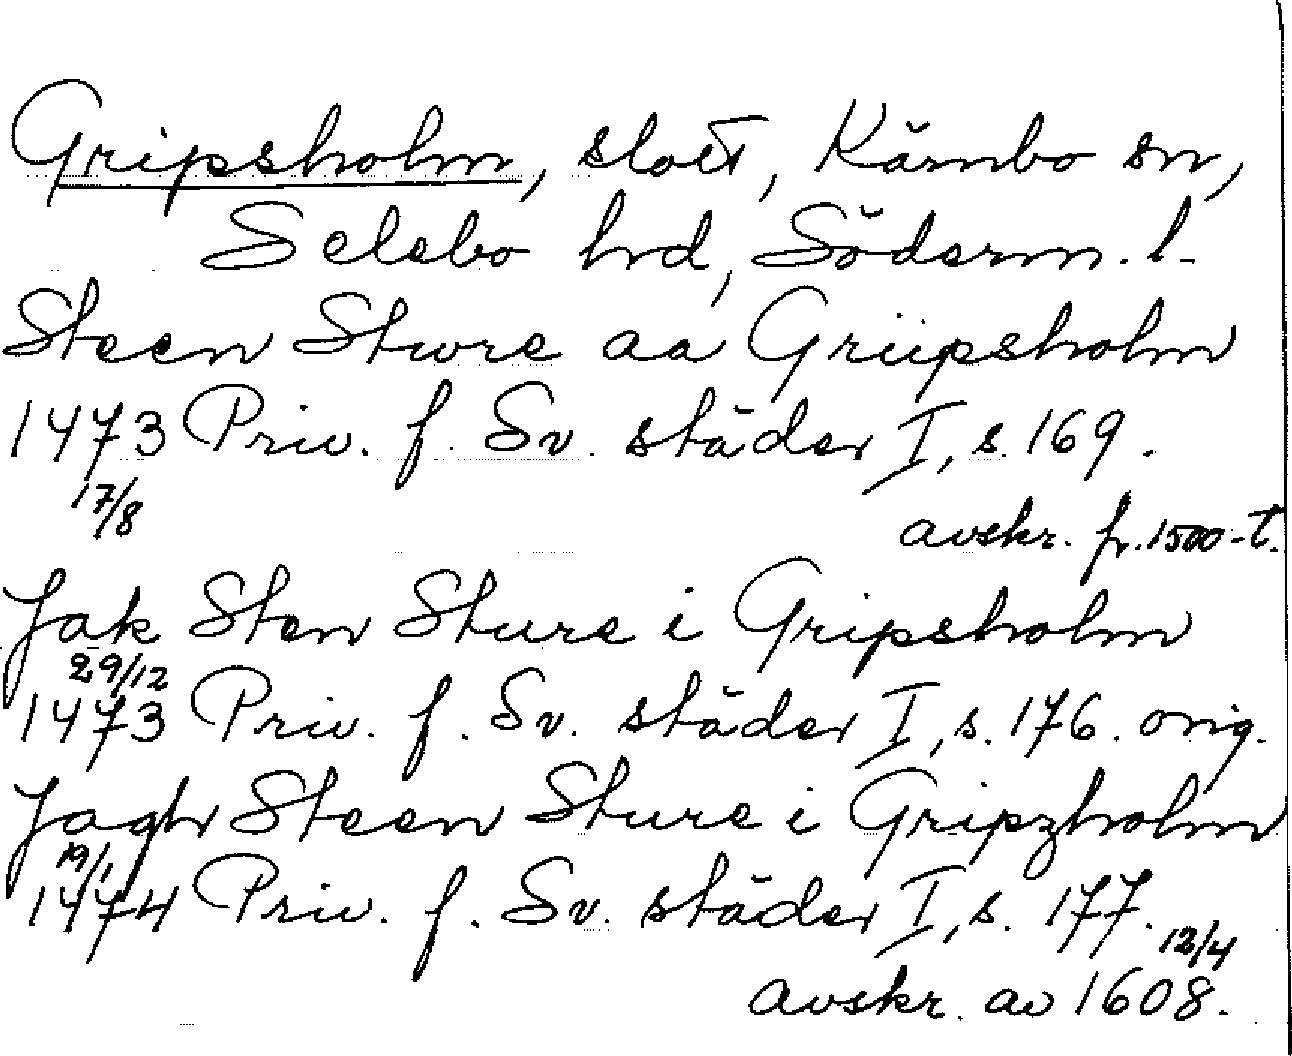 Gripsholm, slott, Kärnbo sn,
Selebo hd, Söderm. l.
Steen Sture aa Griipsholm
1473 Priv. f. Sv. städer I, s. 169.
17/8
avskr. fr. 1500-t.
Jak Sten Sture i Gripsholm
29/12
1473 Priv. f. Sv. städer I, s. 176. orig.
Jagh Steen Sture i Gripzholm
19/1
1474 Priv. f. Sv. städer I, s. 177.
12/4
avskr. av 1608.